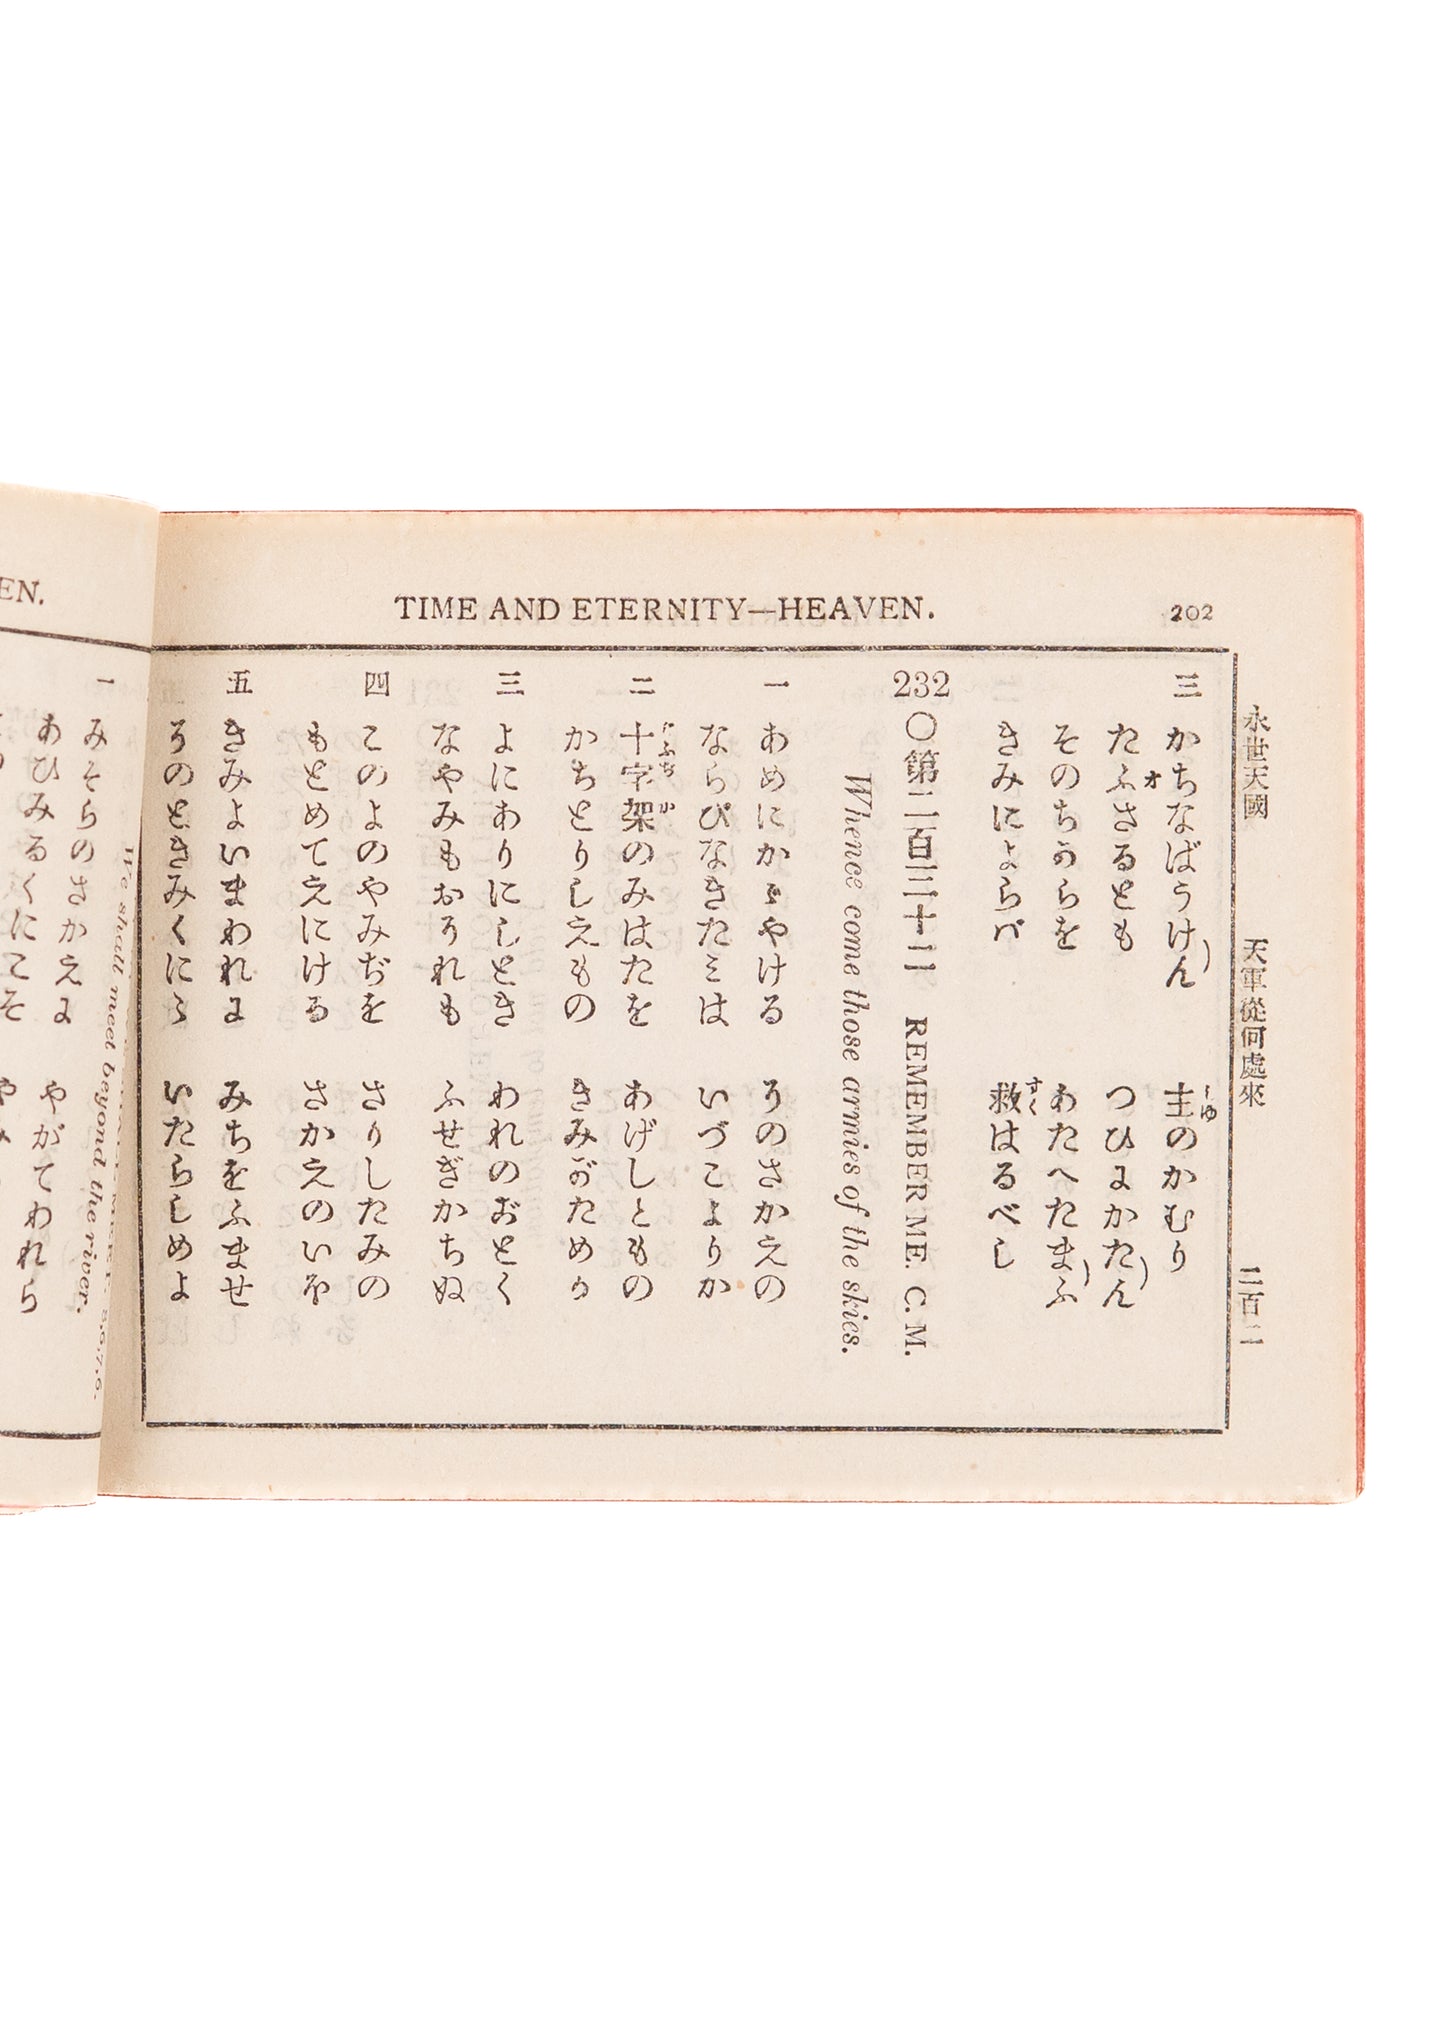 TIME AND ETERNITY—HEAVEN.
202
永世天國 天軍從何處來 二百二
三 かちなばうけん 主のかむり
たふさるとも つひにかたん
そのちからを あたへたまふ
きみによらバ 救はるべし
232 〇第二百三十二 REMEMBER ME. C. M.
Whence come those armies of the skies.
一 あめにかゞやける そのさかえの
ならびなきたミは いづこよりか
二 十字架のみはたを あげしともの
かちとりしえもの きみがためか
三 よにありにしとき われのおとく
なやみもおそれも ふせぎかちぬ
四 このよのやみぢを さりしたみの
もとめてえにける さかえのいへ
五 きみよいまわれに みちをふませ
そのときみくにに いたらしめよ
EN.
We shall meet beyond the river.
一 みそらのさかえに やがてわれら
あひみるくにこそ